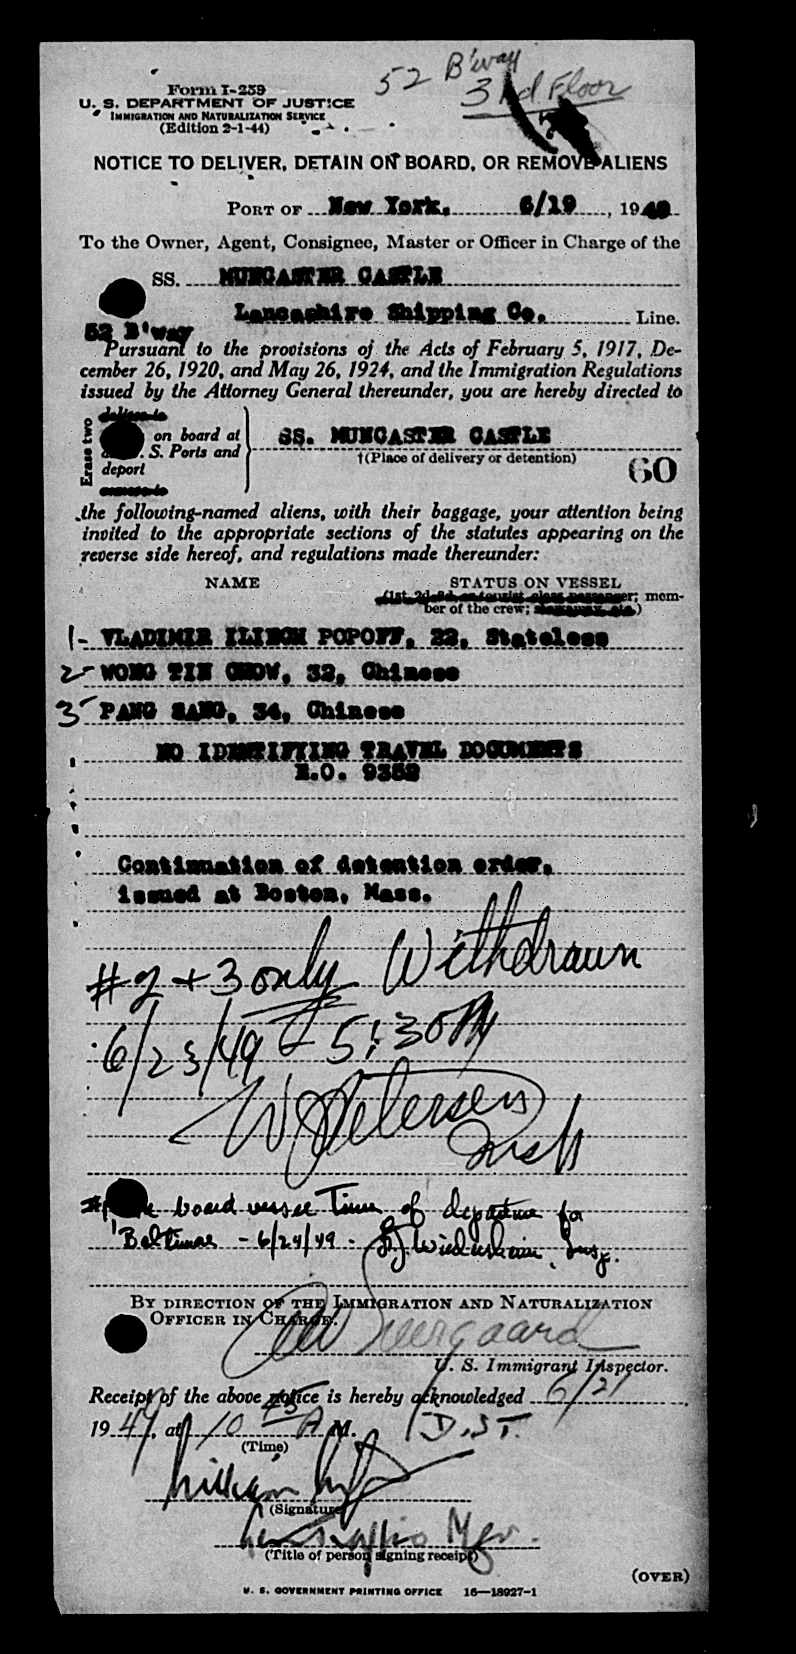 52 B'way
3rd Floor
Form I-259
U. S. DEPARTMENT OF JUSTICE
IMMIGRATION AND NATURALIZATION SERVICE
(Edition 2-1-44)
NOTICE TO DELIVER, DETAIN ON BOARD, OR REMOVE ALIENS
PORT OF New York. 6/19, 1949
To the Owner, Agent, Consignee, Master or Officer in Charge of the
SS. MUNCASTER CASTLE
Lancashire Shipping Co. Line.
52 B'way
Pursuant to the provisions of the Acts of February 5, 1917, De-
cember 26, 1920, and May 26, 1924, and the Immigration Regulations
issued by the Attorney General thereunder, you are hereby directed to
Erase two
on board at SS. MUNCASTER CASTLE
. S. Ports and †(Place of delivery or detention)
deport
60
the following-named aliens, with their baggage, your attention being
invited to the appropriate sections of the statutes appearing on the
reverse side hereof, and regulations made thereunder:
NAME STATUS ON VESSEL
(1st, 2d, 3d, or tourist class passenger; mem-
ber of the crew; )
1- VLADIMIR ILIICH POPOFF, 22, Stateless
2- WONG TIN CHOW, 32, Chinese
3- PANG SANG, 34, Chinese
NO IDENTIFYING TRAVEL DOCUMENTS
E.O. 9352
Continuation of detention order,
issued at Boston, Mass.
#2 + 3 only Withdrawn
6/23/49 - 5:30 PM
W Petersen
Insp
#1 board vessel Time of departure for
Baltimore - 6/24/49 - Insp.
BY DIRECTION OF THE IMMIGRATION AND NATURALIZATION
OFFICER IN CHARGE.
U. S. Immigrant Inspector.
Receipt of the above notice is hereby acknowledged 6/21
1949, at 10 45 A M. D.S.T.
(Time)
William
(Signature)
Mgr.
(Title of person signing receipt)
(OVER)
U. S. GOVERNMENT PRINTING OFFICE 16—18927-1